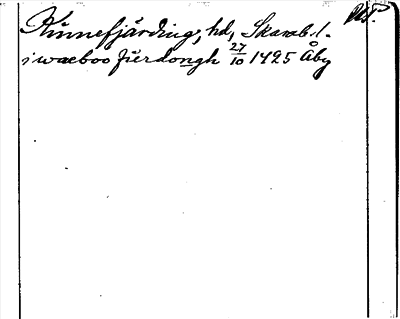 Kinnefjärding, hd, Skarab. l.
i waeboo fierdongh 27/10 1425 Åby